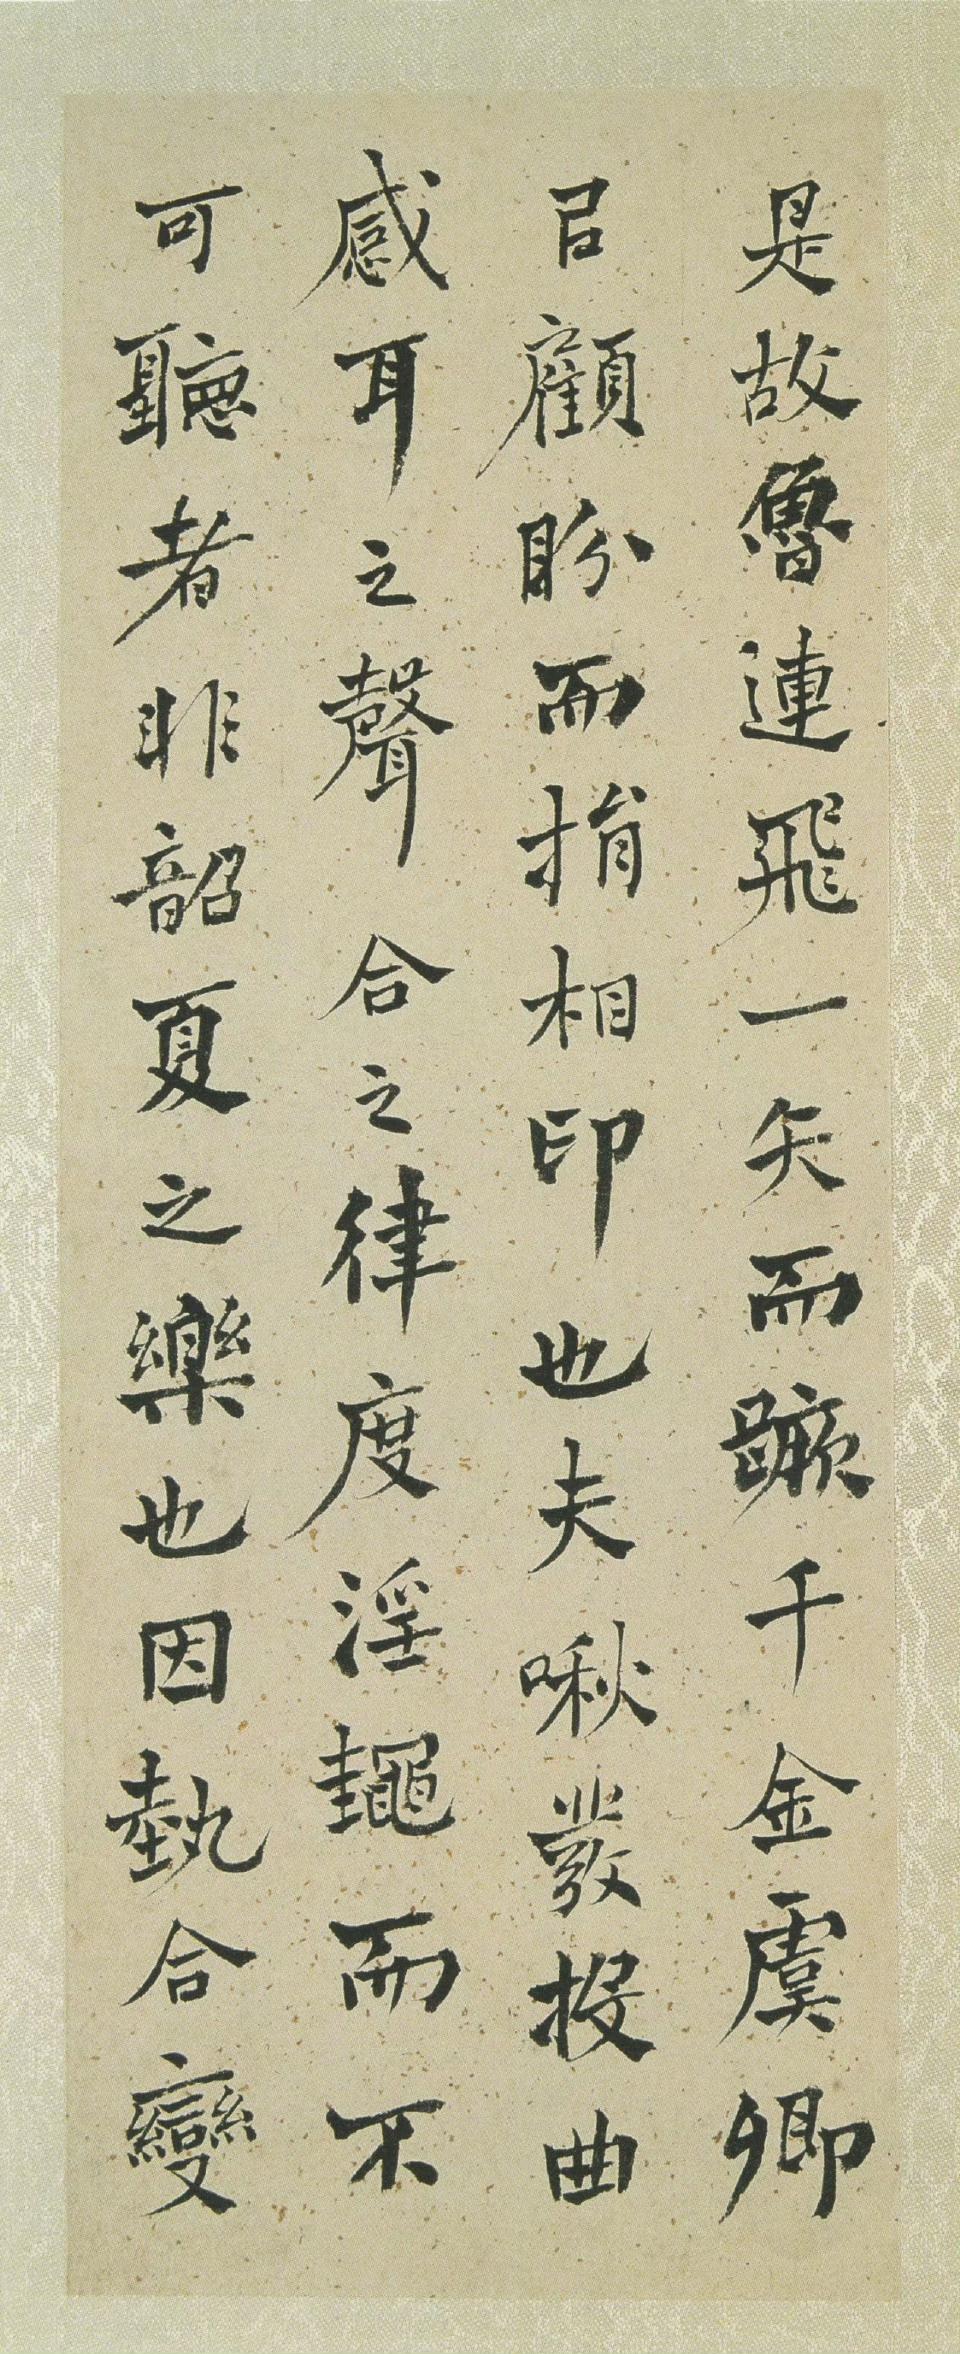 是故魯連飛一矢而蹶千金虞卿
㠯顧盼而捐相印也夫啾發投曲
感耳之聲合之律度淫䵷而不
可聽者非韶夏之樂也因埶合變